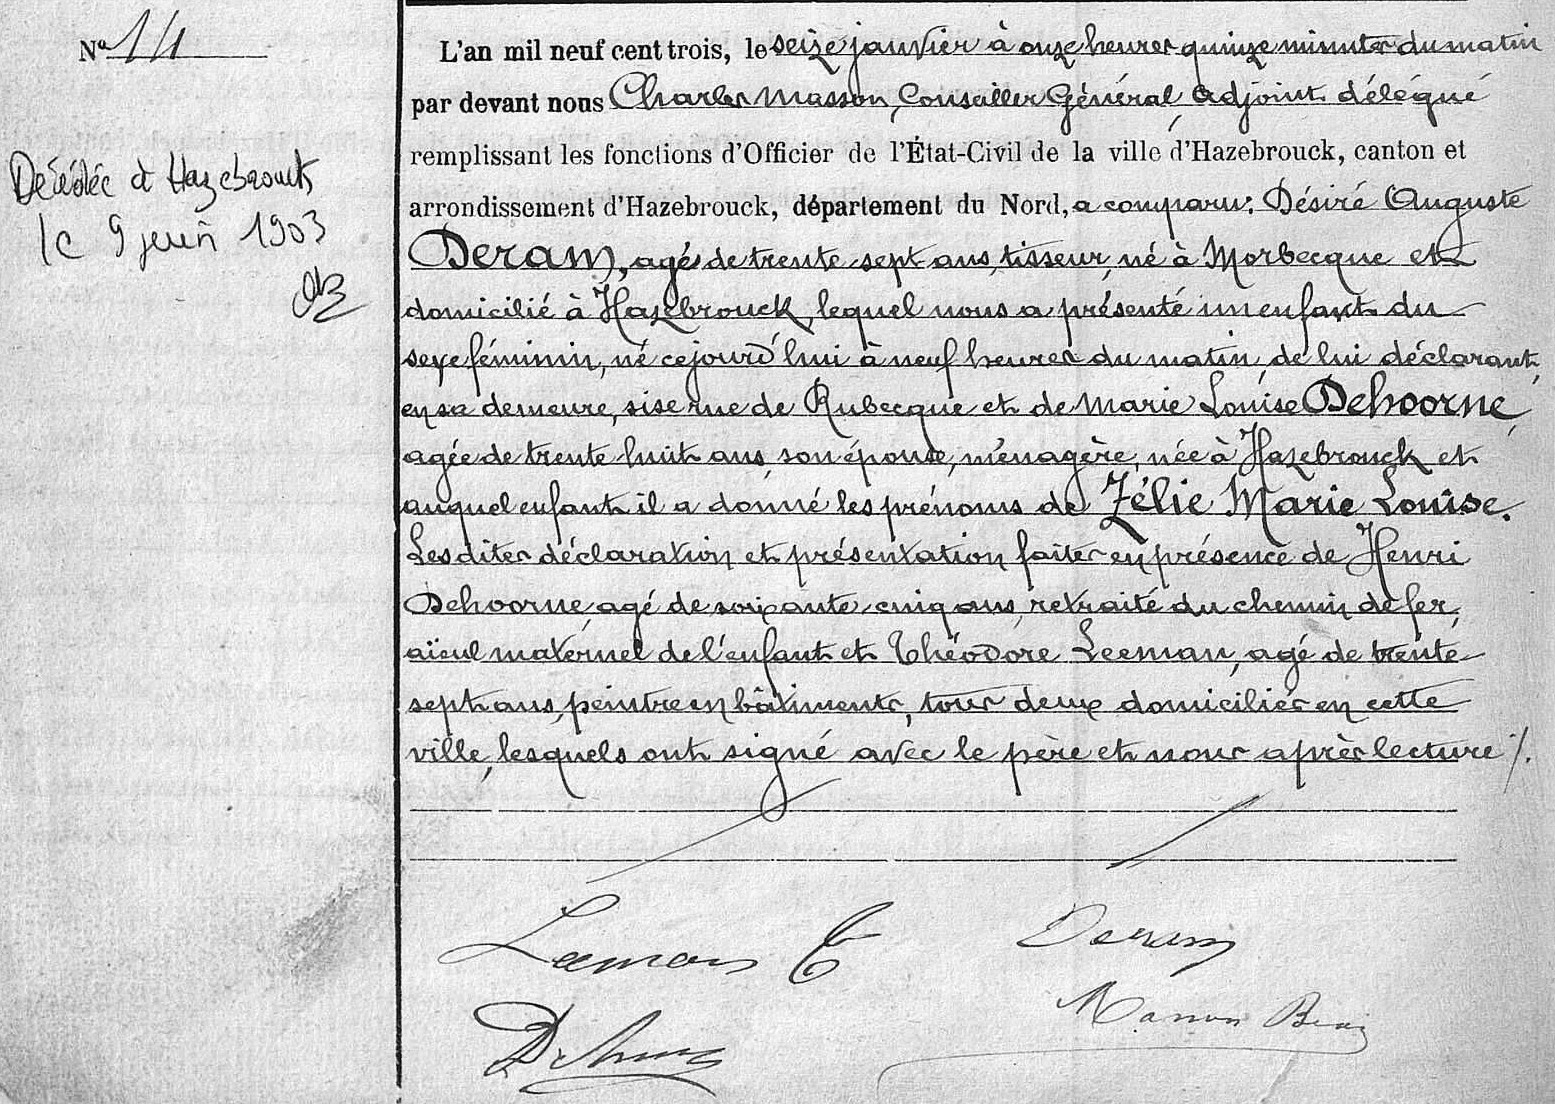 No 14
Décédée à Hazebrouck
le 9 juin 1903
L'an mil neuf cent trois, le seize janvier à onze heures quinze minutes du matin
par devant nous Charles Masson, Conseiller Général, adjoint délégué
remplissant les fonctions d'Officier de l'État-Civil de la ville d'Hazebrouck, canton et
arrondissement d'Hazebrouck, département du Nord, a comparu: Désiré Auguste
Deram, agé de trente sept ans, tisseur, né à Morbecque et
domicilié à Hazebrouck, lequel nous a présenté un enfant du
sexe féminin, né cejourd'hui à neuf heures du matin, de lui déclarant,
en sa demeure, sise rue de Rubecque et de Marie Louise Dehoorne,
agée de trente huit ans, son épouse, ménagère, née à Hazebrouck et
auquel enfant il a donné les prénoms de Zélie Marie Louise.
Lesdites déclaration et présentation faites en présence de Henri
Dehoorne, agé de soixante-cinq ans, retraité du chemin de fer,
aïeul maternel de l'enfant et Théodore Leeman, agé de trente
sept ans, peintre en bâtiments, tous deux domiciliés en cette
ville, lesquels ont signé avec le père et nous après lecture ./.
Leeman T
Deram
Dehoorne
Masson